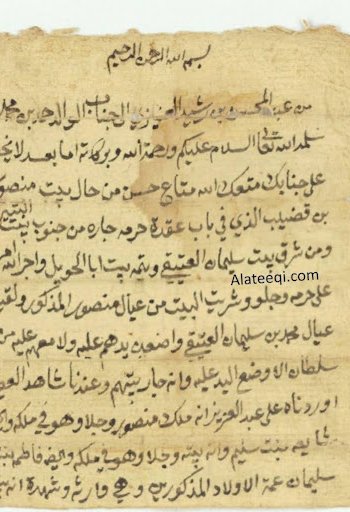 بسم الله الرحمن الرحيم
من عبد المحسن بن رشيد الى جناب الوالد حمد بن محمد
سلمه الله تعالى السلام عليكم ورحمة الله وبركاته اما بعد لا يخفى
على جنابك متعك الله متاع حسن من حال بيت منصور
بن قضيب الذي في باب عقدة حرمه جاره من جنوب بيت
ومن شرق بيت سليمان العتيقي وتمه بيت ابا الحويل
Alateeqi.com
على حرمه وجلو وشريت البيت من عيال منصور المذكور
عيال محمد بن سليمان العتيقي واضعين يدهم عليه ولا معهم عليه من
سلطان الا وضع اليد عليه وانه جار بيتهم وعندنا شاهد
اوردناه على عبد العزيز انه ملك منصور وجلا وهو في ملكه
بنت سليم وانه بيته وجلا وهو في ملكه فاطمه بنت
سليمان عمة الاولاد المذكورين وهي وارثه وشهدة انه